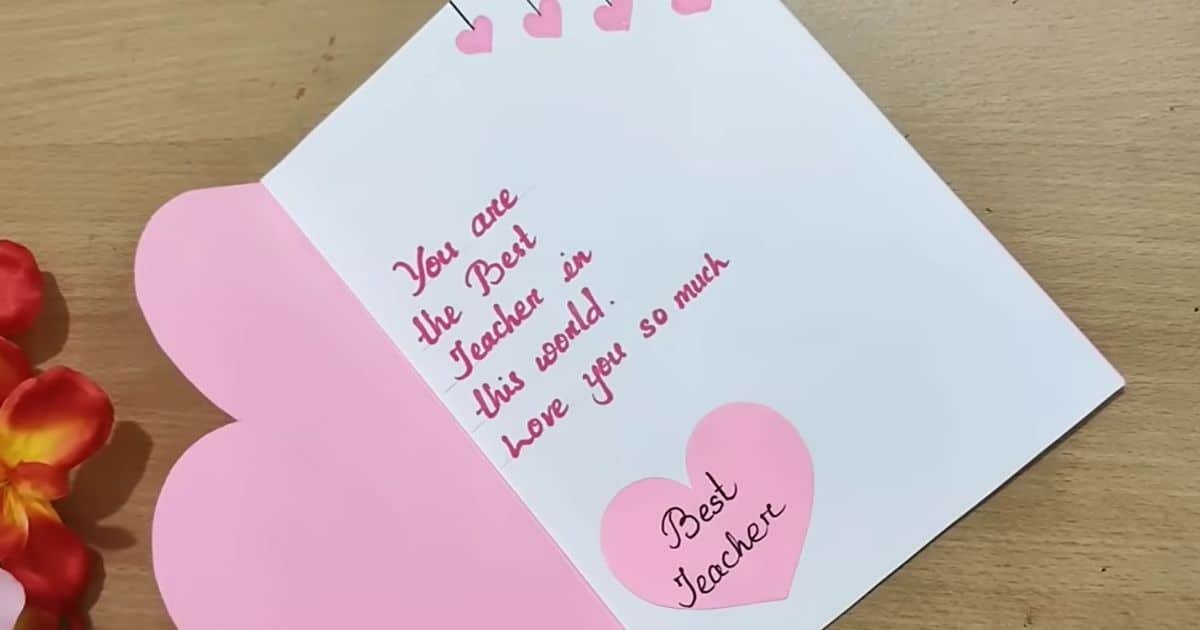 You are
the Best
Teacher in
this world.
Love you so much
Best
Teacher